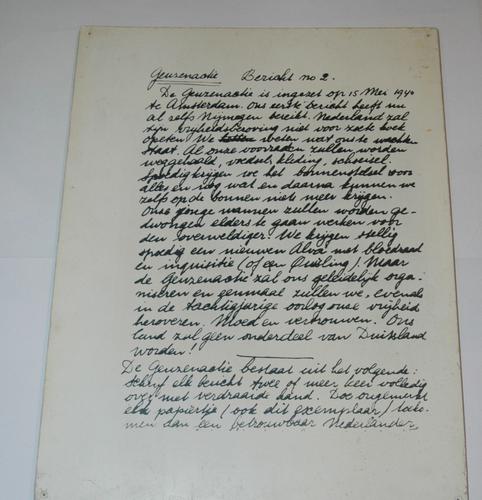 Geuzenactie Bericht no 2.
De Geuzenactie is ingezet op 15 Mei 1940
te Amsterdam. Ons eerste bericht heeft nu
al zelfs Nijmegen bereikt. Nederland zal
zijn vrijheidsberooving niet voor zoete koek
opeten. We weten wat ons te wachten
staat. Al onze voorraden zullen worden
weggehaald, voedsel, kleding, schoeisel.
Spoedig krijgen we het bonnenstelsel voor
alles en nog wat en daarna kunnen we
zelfs op de bonnen niet meer krijgen.
Onze jonge mannen zullen worden ge-
dwongen elders te gaan werken voor
den overweldiger. We krijgen stellig
spoedig een nieuwen Alva met bloedraad
en inquisitie (of een Quisling). Maar
de Geuzenactie zal ons geleidelijk orga-
niseeren en eenmaal zullen we, evenals
in de tachtigjarige oorlog onze vrijheid
heroveren. Moed en vertrouwen. Ons
land zal geen onderdeel van Duitsland
worden!
De Geuzenactie bestaat uit het volgende:
Schrijf elk bericht twee of meer keer volledig
over met verdraaide hand. Doe ongemerkt
elk papiertje (ook dit exemplaar) toeko-
men aan een betrouwbaar Nederlander.